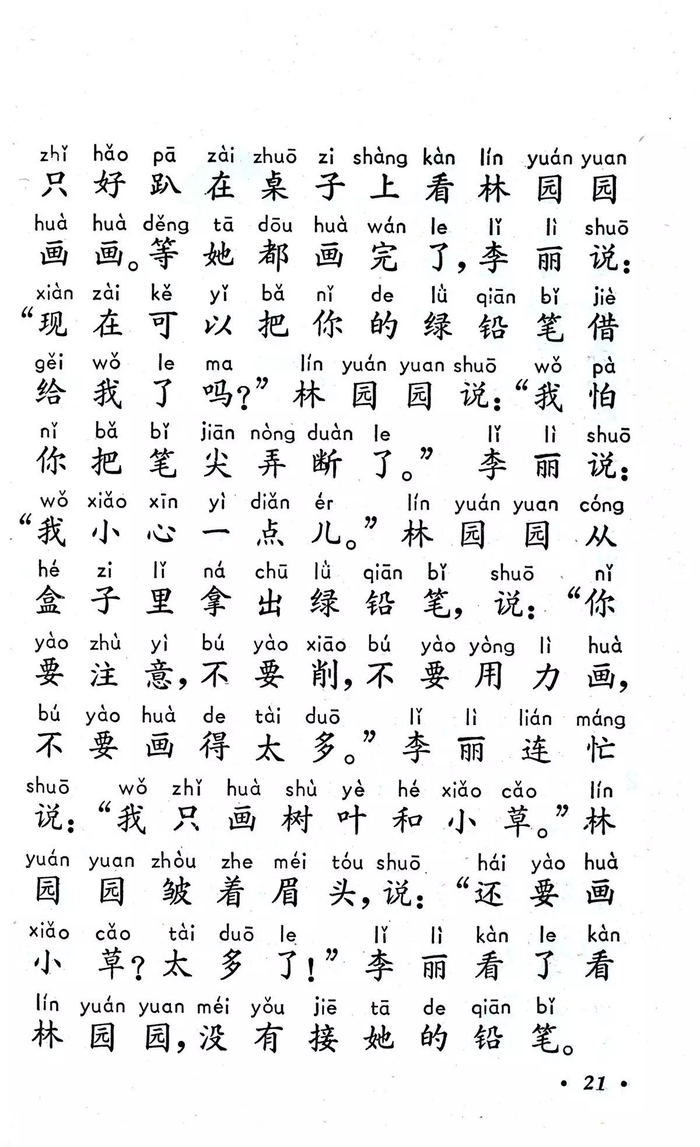 zhǐ hǎo pā zài zhuō zi shàng kàn lín yuán yuan
只好趴在桌子上看林园园
huà huà děng tā dōu huà wán le lǐ lì shuō
画画。等她都画完了，李丽说：
xiàn zài kě yǐ bǎ nǐ de lǜ qiān bǐ jiè
“现在可以把你的绿铅笔借
gěi wǒ le ma lín yuán yuan shuō wǒ pà
给我了吗？”林园园说：“我怕
nǐ bǎ bǐ jiān nòng duàn le lǐ lì shuō
你把笔尖弄断了。”李丽说：
wǒ xiǎo xīn yì diǎn ér lín yuán yuan cóng
“我小心一点儿。”林园园从
hé zi lǐ ná chū lǜ qiān bǐ shuō nǐ
盒子里拿出绿铅笔，说：“你
yào zhù yì bú yào xiāo bú yào yòng lì huà
要注意，不要削，不要用力画，
bú yào huà de tài duō lǐ lì lián máng
不要画得太多。”李丽连忙
shuō wǒ zhǐ huà shù yè hé xiǎo cǎo lín
说：“我只画树叶和小草。”林
yuán yuan zhòu zhe méi tóu shuō hái yào huà
园园皱着眉头，说：“还要画
xiǎo cǎo tài duō le lǐ lì kàn le kàn
小草？太多了！”李丽看了看
lín yuán yuan méi yǒu jiē tā de qiān bǐ
林园园，没有接她的铅笔。
• 21 •